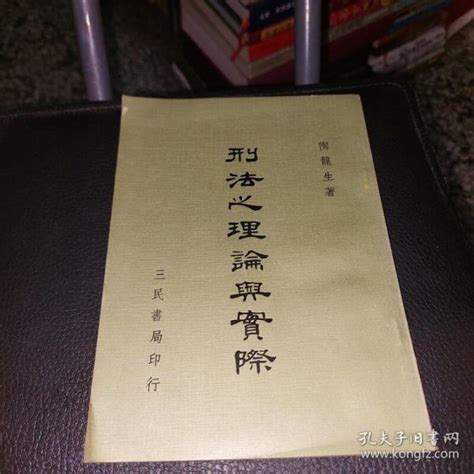 陶龍生著
刑法之理論與實際
三民書局印行
孔夫子旧书网
www.kongfz.com